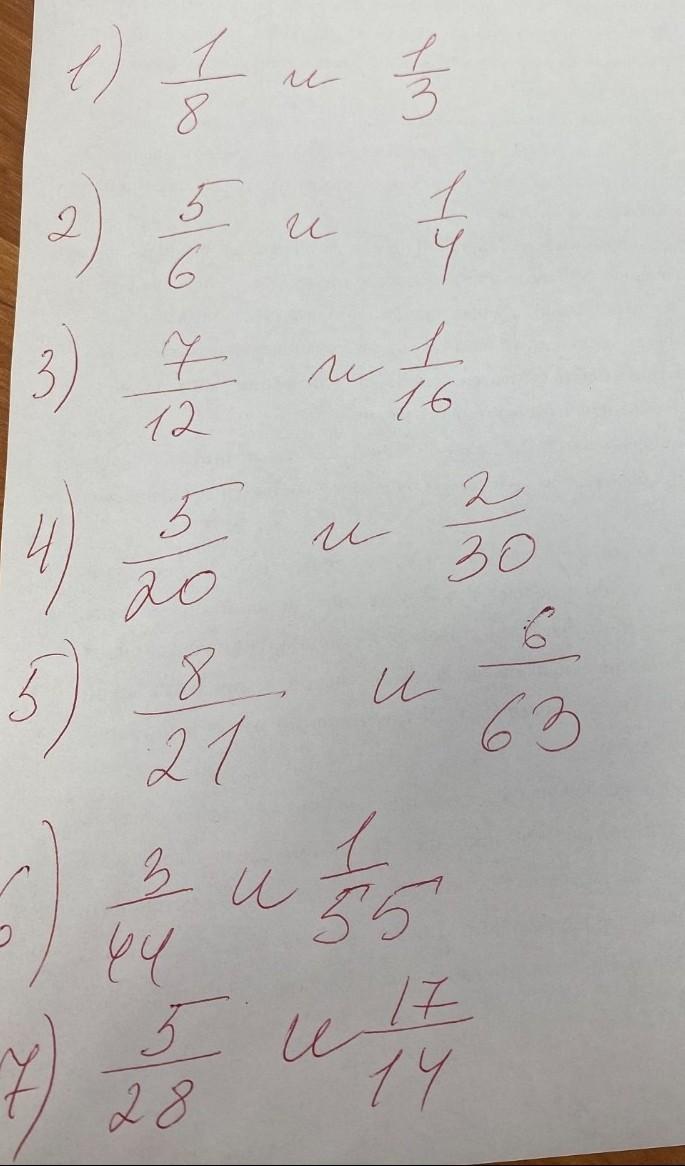 1) 1/8 и 1/3
2) 5/6 и 1/4
3) 7/12 и 1/16
4) 5/20 и 2/30
5) 8/21 и 6/63
6) 3/44 и 1/55
7) 5/28 и 17/14